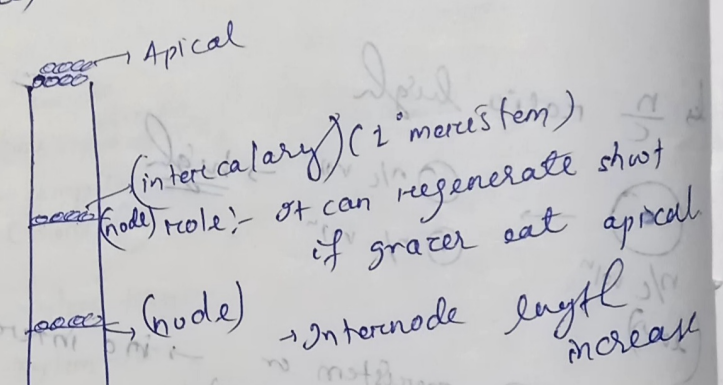 → Apical
(intercalary) (1° meristem)
(node) role:- It can regenerate shoot
if grazer eat apical
→ (node) → Internode length
increase